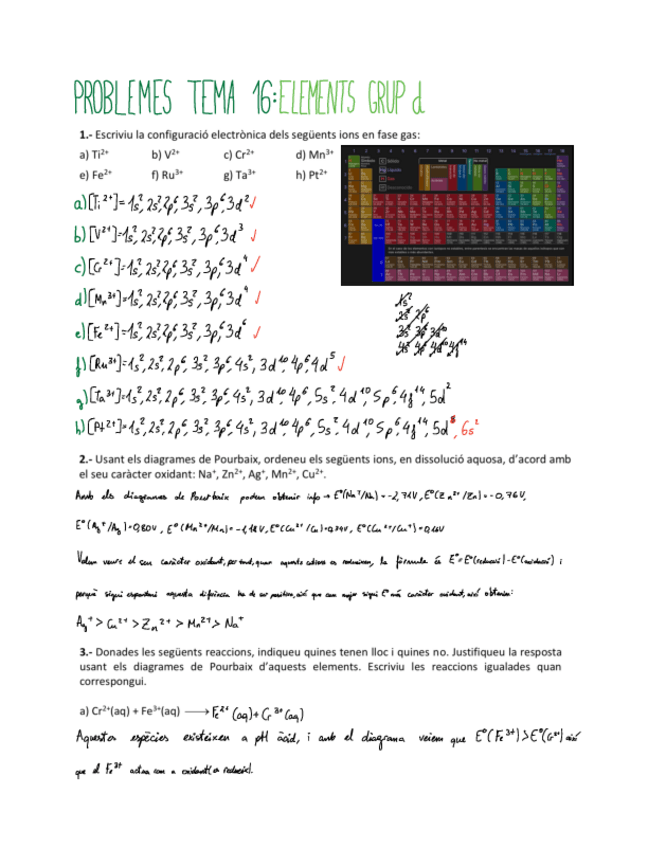 PROBLEMES TEMA 16: ELEMENTS GRUP d
1.- Escriviu la configuració electrònica dels següents ions en fase gas:
a) Ti²⁺ b) V²⁺ c) Cr²⁺ d) Mn³⁺
e) Fe²⁺ f) Ru³⁺ g) Ta³⁺ h) Pt²⁺
a) [Ti²⁺]=1s², 2s², 2p⁶, 3s², 3p⁶, 3d² ✓
b) [V²⁺]=1s², 2s², 2p⁶, 3s², 3p⁶, 3d³ ✓
c) [Cr²⁺]=1s², 2s², 2p⁶, 3s², 3p⁶, 3d⁴ ✓
d) [Mn³⁺]=1s², 2s², 2p⁶, 3s², 3p⁶, 3d⁴ ✓
e) [Fe²⁺]=1s², 2s², 2p⁶, 3s², 3p⁶, 3d⁶ ✓
f) [Ru³⁺]=1s², 2s², 2p⁶, 3s², 3p⁶, 4s², 3d¹⁰, 4p⁶, 4d⁵ ✓
g) [Ta³⁺]=1s², 2s², 2p⁶, 3s², 3p⁶, 4s², 3d¹⁰, 4p⁶, 5s², 4d¹⁰, 5p⁶, 4f¹⁴, 5d²
h) [Pt²⁺]=1s², 2s², 2p⁶, 3s², 3p⁶, 4s², 3d¹⁰, 4p⁶, 5s², 4d¹⁰, 5p⁶, 4f¹⁴, 5d⁸, 6s²
1s²
2s² 2p⁶
3s² 3p⁶ 3d¹⁰
4s² 4p⁶ 4d¹⁰ 4f¹⁴
2.- Usant els diagrames de Pourbaix, ordeneu els següents ions, en dissolució aquosa, d'acord amb
el seu caràcter oxidant: Na⁺, Zn²⁺, Ag⁺, Mn²⁺, Cu²⁺.
Amb els diagrames de Pourbaix podem obtenir info → E°(Na⁺/Na)=-2,71V, E°(Zn²⁺/Zn)=-0,76V,
E°(Ag⁺/Ag)=0,80V, E°(Mn²⁺/Mn)=-1,18V, E°(Cu²⁺/Cu)=0,34V, E°(Cu²⁺/Cu⁺)=0,16V
Volem veure el seu caràcter oxidant, per tant, quan aquests cations es redueixen, la fórmula és E°=E°(reducció)-E°(oxidació) i
perquè sigui espontani aquesta diferència ha de ser positiva, així que com major sigui E° més caràcter oxidant, així obtenim:
Ag⁺ > Cu²⁺ > Zn²⁺ > Mn²⁺ > Na⁺
3.- Donades les següents reaccions, indiqueu quines tenen lloc i quines no. Justifiqueu la resposta
usant els diagrames de Pourbaix d'aquests elements. Escriviu les reaccions igualades quan
correspongui.
a) Cr²⁺(aq) + Fe³⁺(aq) ⟶ Fe²⁺(aq) + Cr³⁺(aq)
Aquestes espècies existeixen a pH àcid, i amb el diagrama veiem que E°(Fe³⁺)>E°(Cr²⁺) així
que el Fe³⁺ actua com a oxidant (es redueix).